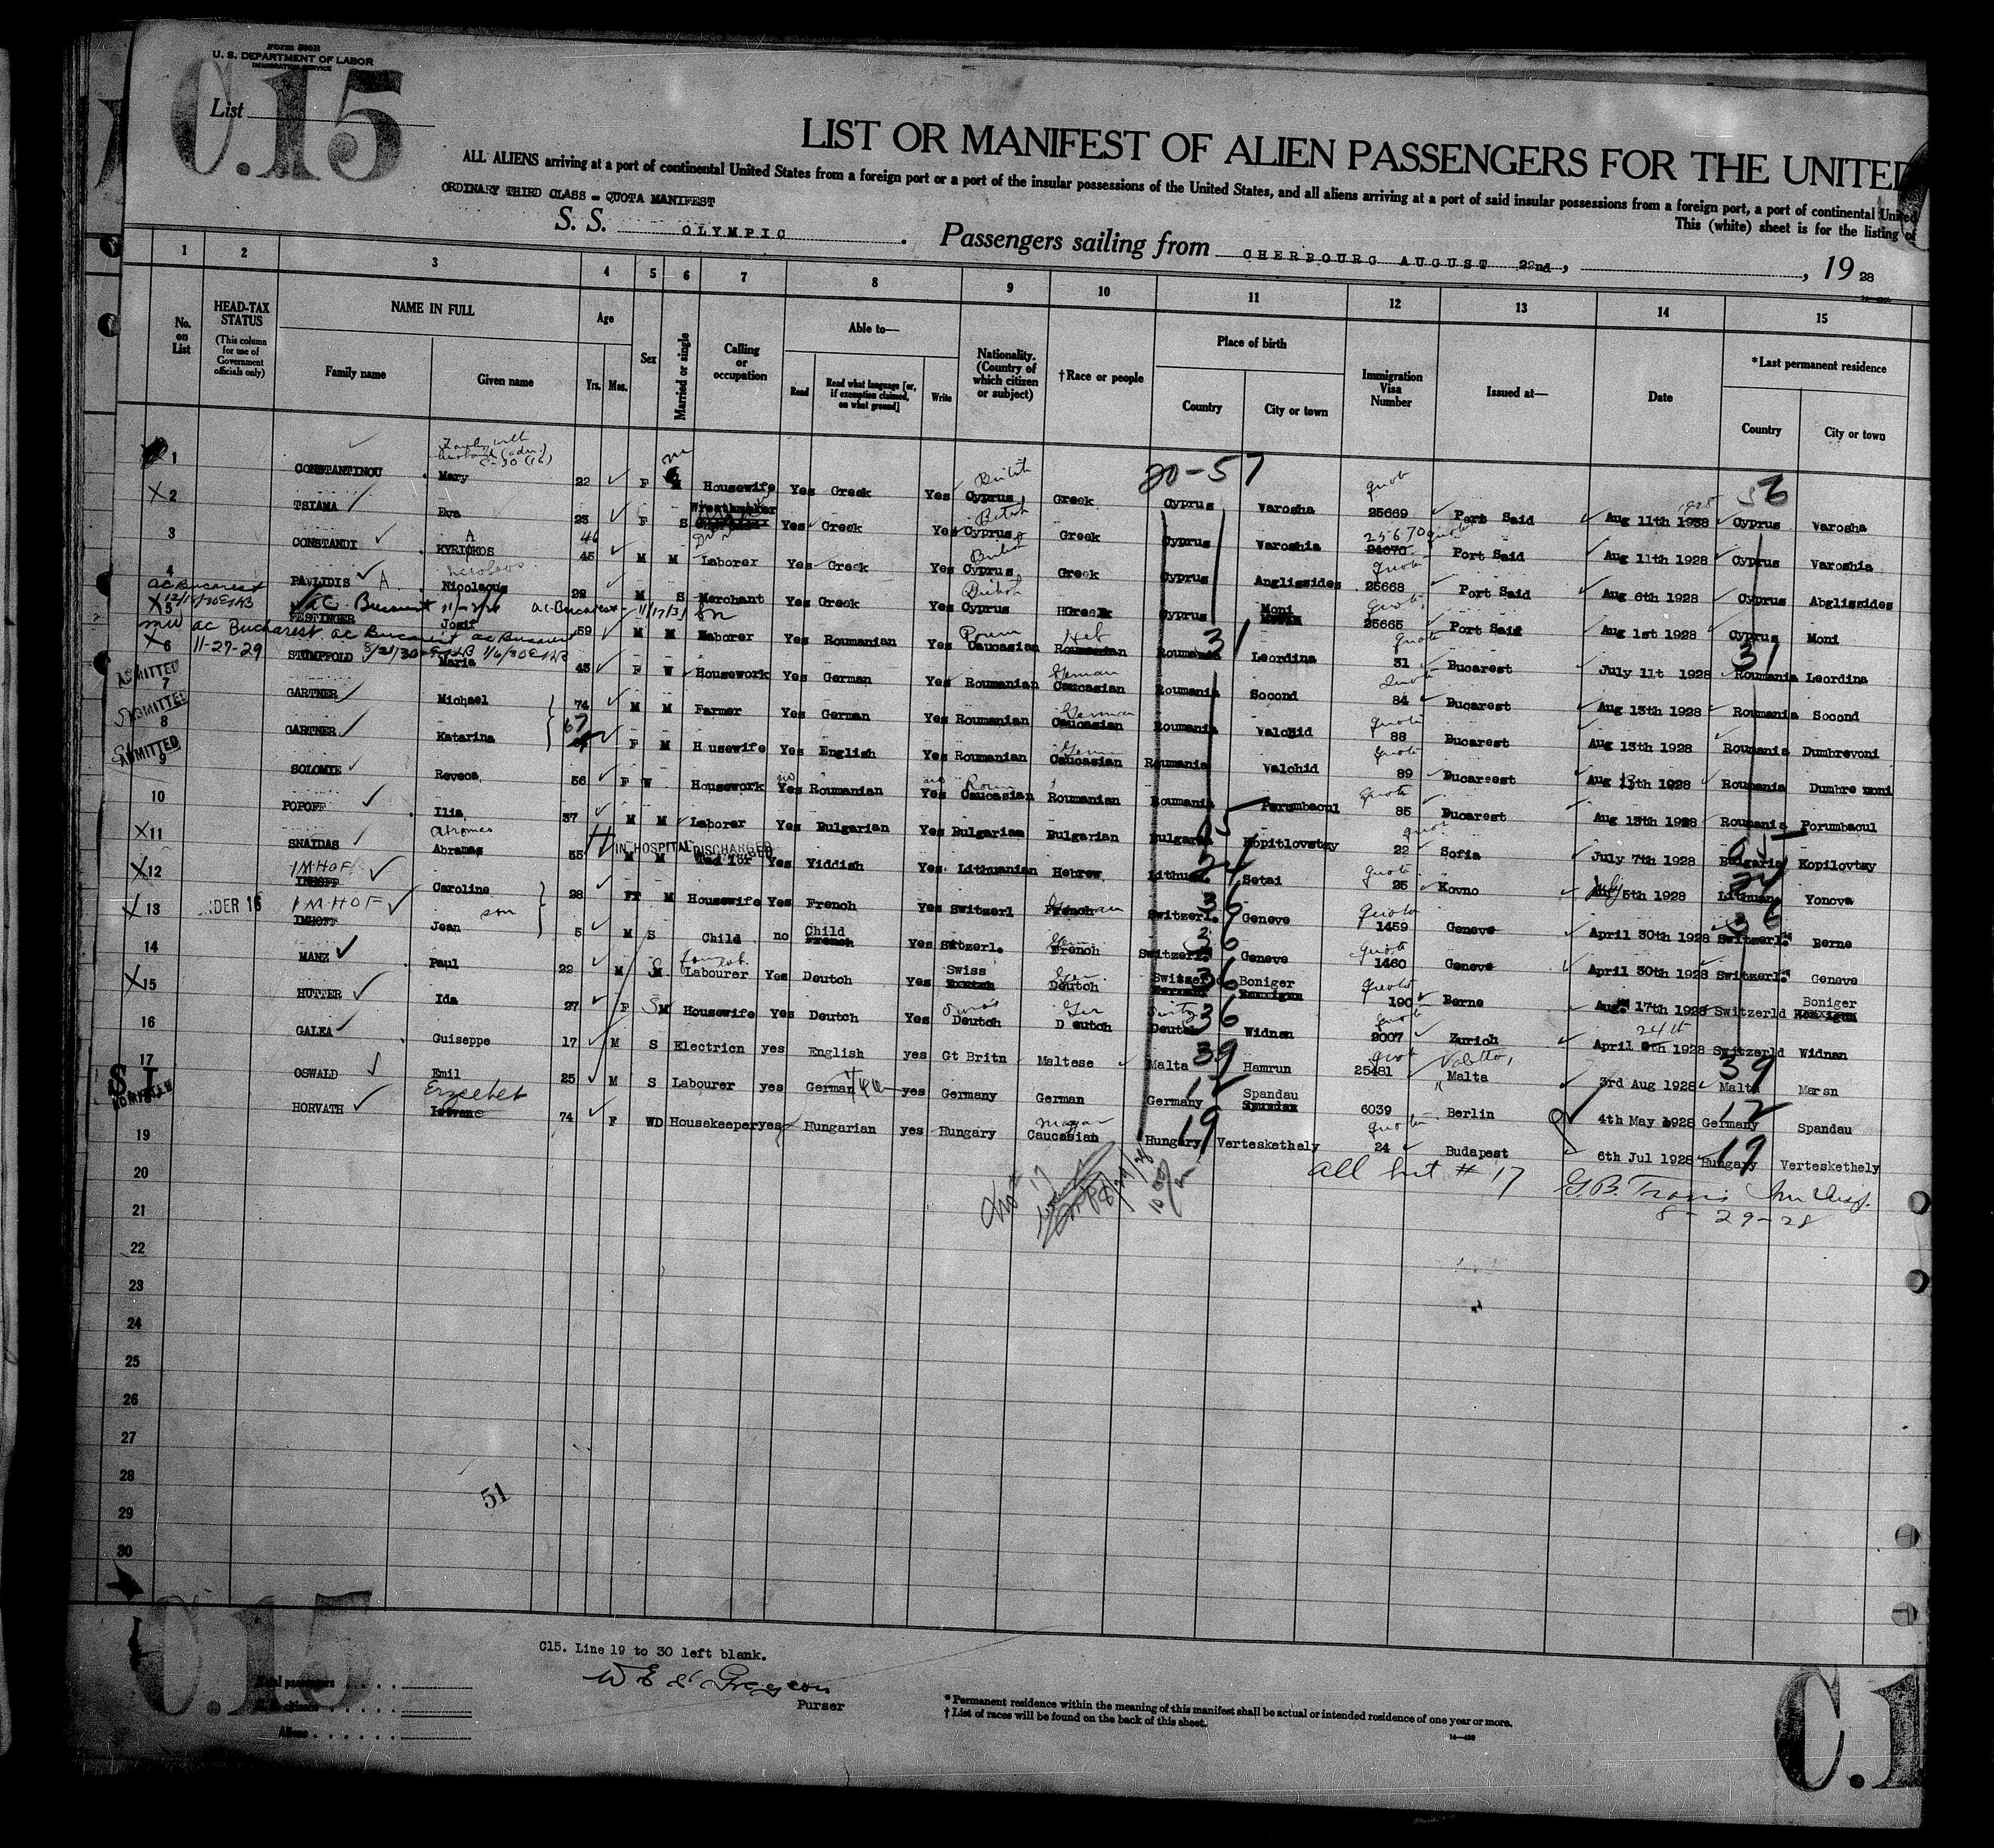 Form 500B
U. S. DEPARTMENT OF LABOR
IMMIGRATION SERVICE
C.15
List
LIST OR MANIFEST OF ALIEN PASSENGERS FOR THE UNITED
ALL ALIENS arriving at a port of continental United States from a foreign port or a port of the insular possessions of the United States, and all aliens arriving at a port of said insular possessions from a foreign port, a port of continental United
ORDINARY THIRD CLASS - QUOTA MANIFEST
This (white) sheet is for the listing of
S. S. OLYMPIC. Passengers sailing from CHERBOURG AUGUST 22nd, , 19 28
1 2 3 4 5 6 7 8 9 10 11 12 13 14 15
No. on List
HEAD-TAX STATUS (This column for use of Government officials only)
NAME IN FULL Family name Given name
Age Yrs. Mos.
Sex
Married or single
Calling or occupation
Able to— Read Read what language [or, if exemption claimed, on what ground] Write
Nationality. (Country of which citizen or subject)
†Race or people
Place of birth Country City or town
Immigration Visa Number
Issued at—
Date
*Last permanent residence Country City or town
20-57
1 CONSTANTINOU Mary 22 F M Housewife Yes Greek Yes British Cyprus Greek Cyprus Varosha 25669 Port Said Aug 11th 1928 Cyprus Varosha
X 2 TSIAMA Eva 23 F S Yes Greek Yes British Cyprus Greek Cyprus Varoshia 25670 24670 Port Said Aug 11th 1928 Cyprus Varoshia
3 CONSTANDI KYRIAKOS 46 45 M M Laborer Yes Greek Yes British Cyprus Greek Cyprus Anglissides 25668 Port Said Aug 6th 1928 Cyprus Abglissides
4 PAVLIDIS A. Nicolaous 28 M S Merchant Yes Greek Yes British Cyprus Greek Cyprus Moni 25665 Port Said Aug 1st 1928 Cyprus Moni
ac Bucarest
X 5 FESTINGER Josif 59 M M Laborer Yes Roumanian Yes Roum Caucasian Heb Roumanian Roumania 31 Leordina 31 Bucarest July 11t 1928 Roumania Leordina
ac Bucharest ac Bucarest ac Bucarest
X 6 11-27-29 STUMPFOLD Maria 43 F W Housework Yes German Yes Roumanian German Caucasian Roumania Socond 84 Bucarest Aug 13th 1928 Roumania Socond
ADMITTED
7 GARTNER Michael 74 M M Farmer Yes German Yes Roumanian German Caucasian Roumania Valchid 88 Bucarest Aug 13th 1928 Roumania Dumbrevoni
ADMITTED
8 GARTNER Katarina 67 F M Housewife Yes English Yes Roumanian German Caucasian Roumania Valchid 89 Bucarest Aug 13th 1928 Roumania Dumbre moni
ADMITTED
9 SOLOMIE Reveca 56 F W Housework no Yes Roumanian no Yes Roum Caucasian Roumanian Roumania Porumbacul 85 Bucarest Aug 13th 1928 Roumania Porumbacul
10 POPOFF Ilia 37 M M Laborer Yes Bulgarian Yes Bulgarian Bulgarian Bulgaria Kopitlovstzy 22 Sofia July 7th 1928 Bulgaria Kopilovtzy
IN HOSPITAL DISCHARGED
X 11 SNAIDAS Abramas 55 M M Yes Yiddish Yes Lithuanian Hebrew Lithuan. Setai 25 Kovno July 5th 1928 Lithuan. Yonova
X 12 IMHOF IMHOFF Caroline 28 F M Housewife Yes French Yes Switzerl French Switzerl. 36 Geneve 1459 Geneve April 30th 1928 Switzerl. Berne
X 13 UNDER 16 IMHOF IMHOFF Jean son 5 M S Child no Child French Yes Switzerl. French Switzerl. 36 Geneve 1460 Geneve April 30th 1928 Switzerl. Geneve
14 MANZ Paul 22 M M Labourer Yes Deutch Yes Swiss Ger Deutch Switzerld 36 Boniger 190 Berne Aug. 17th 1928 Switzerld Boniger
X 15 HUTTER Ida 27 F S M Housewife Yes Deutch Yes Swiss Deutch Ger Deutch Switz Deutch 36 Widnan 2007 Zurich April 24th 1928 Switzerld Widnan
16 GALEA Guiseppe 17 M S Electricn yes English yes Gt Britn Maltese Malta 39 Hamrun 25481 Valetta, Malta 3rd Aug 1928 Malta 39 Marsn
S I ADMITTED
17 OSWALD Emil 25 M S Labourer yes German yes Germany German Germany 12 Spandau 6039 Berlin 4th May 1928 Germany 12 Spandau
HORVATH Erzsebet Istvane 74 F WD Housekeeper yes Hungarian yes Hungary Magyar Caucasian Hungary 19 Verteskethely 24 Budapest 6th Jul 1928 Hungary 19 Verteskethely
19
20 All but #17 G.B. Travis
21 8-29-28
22
23
24
25
26
27
28
29 51
30
C15. Line 19 to 30 left blank.
Purser
Total passengers
Aliens
* Permanent residence within the meaning of this manifest shall be actual or intended residence of one year or more.
† List of races will be found on the back of this sheet.
C.15
C.1